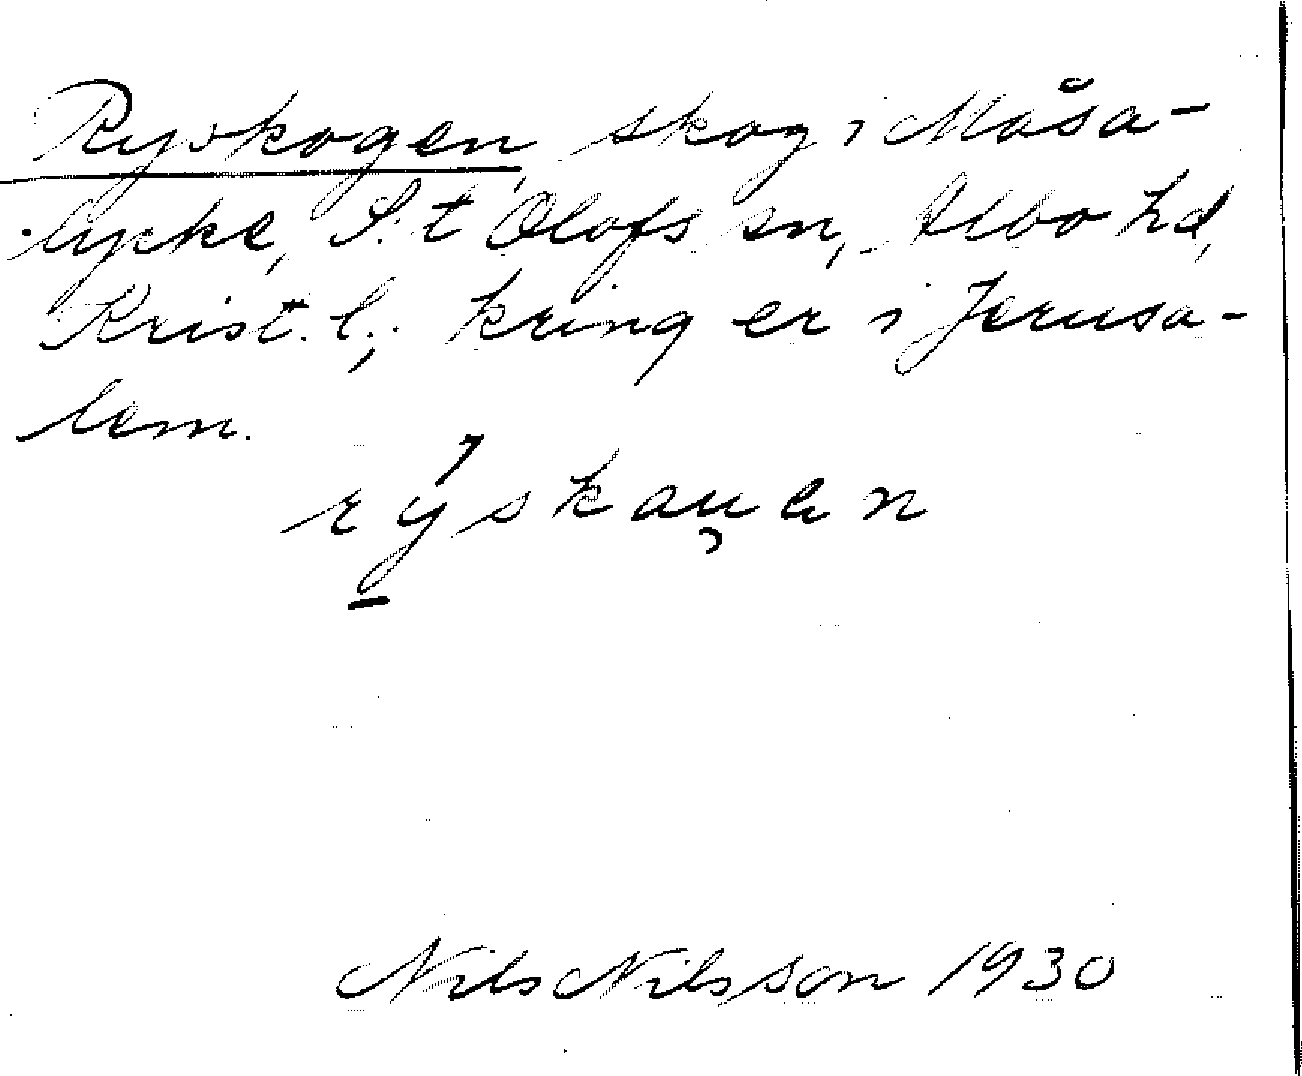 Ryskogen, skog i Måsa-
lycke, S:t Olofs sn, Albo hd,
Krist. l.; kring er i Jerusa-
lem.
rýskau̡en
Nils Nilsson 1930